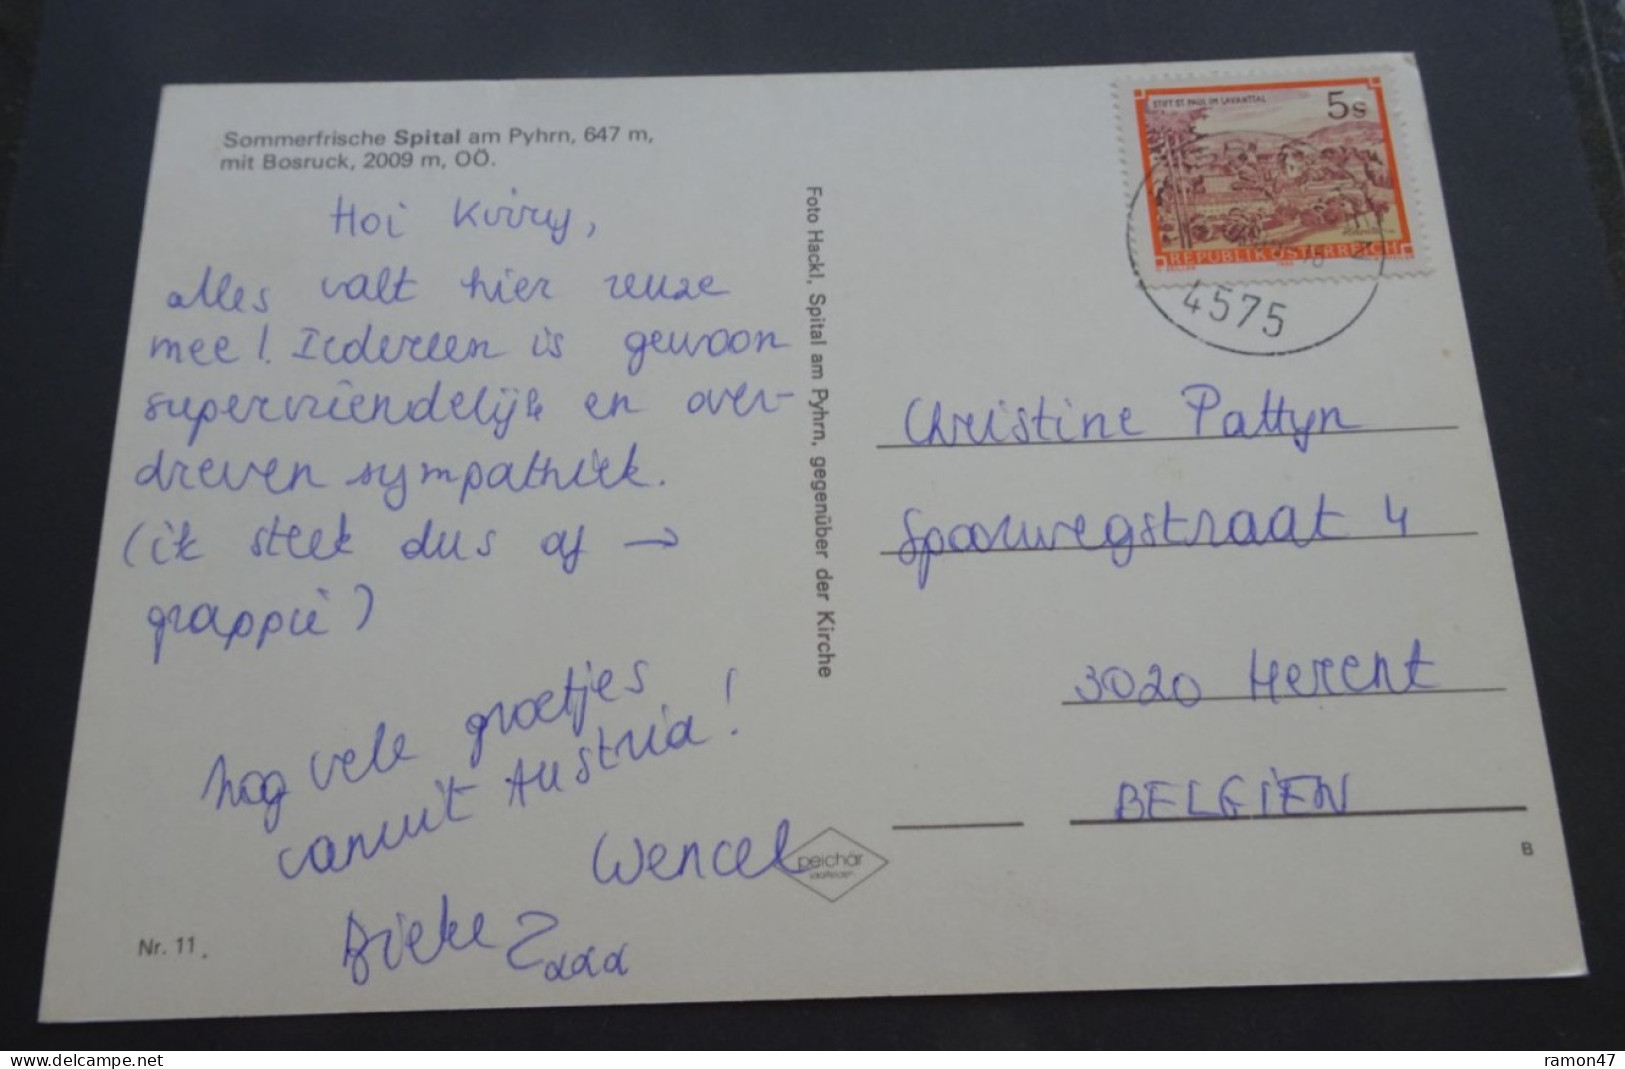 Sommerfrische Spital am Pyhrn, 647 m,
mit Bosruck, 2009 m, OÖ.
Hoi Kirry,
alles valt hier reuze
mee! Iedereen is gewoon
supervriendelijk en over-
dreven sympathiek.
(ik steek dus af →
grappie)
nog vele groetjes
vanuit Austria!
Wencel
Bieke
Nr. 11.
Foto Hackl, Spital am Pyhrn, gegenüber der Kirche
peichär
STIFT ST. PAUL IM LAVANTTAL
5s
REPUBLIK ÖSTERREICH
4575
Christine Pattyn
Spoorwegstraat 4
3020 Herent
BELGIEN
B
www.delcampe.net
ramon47